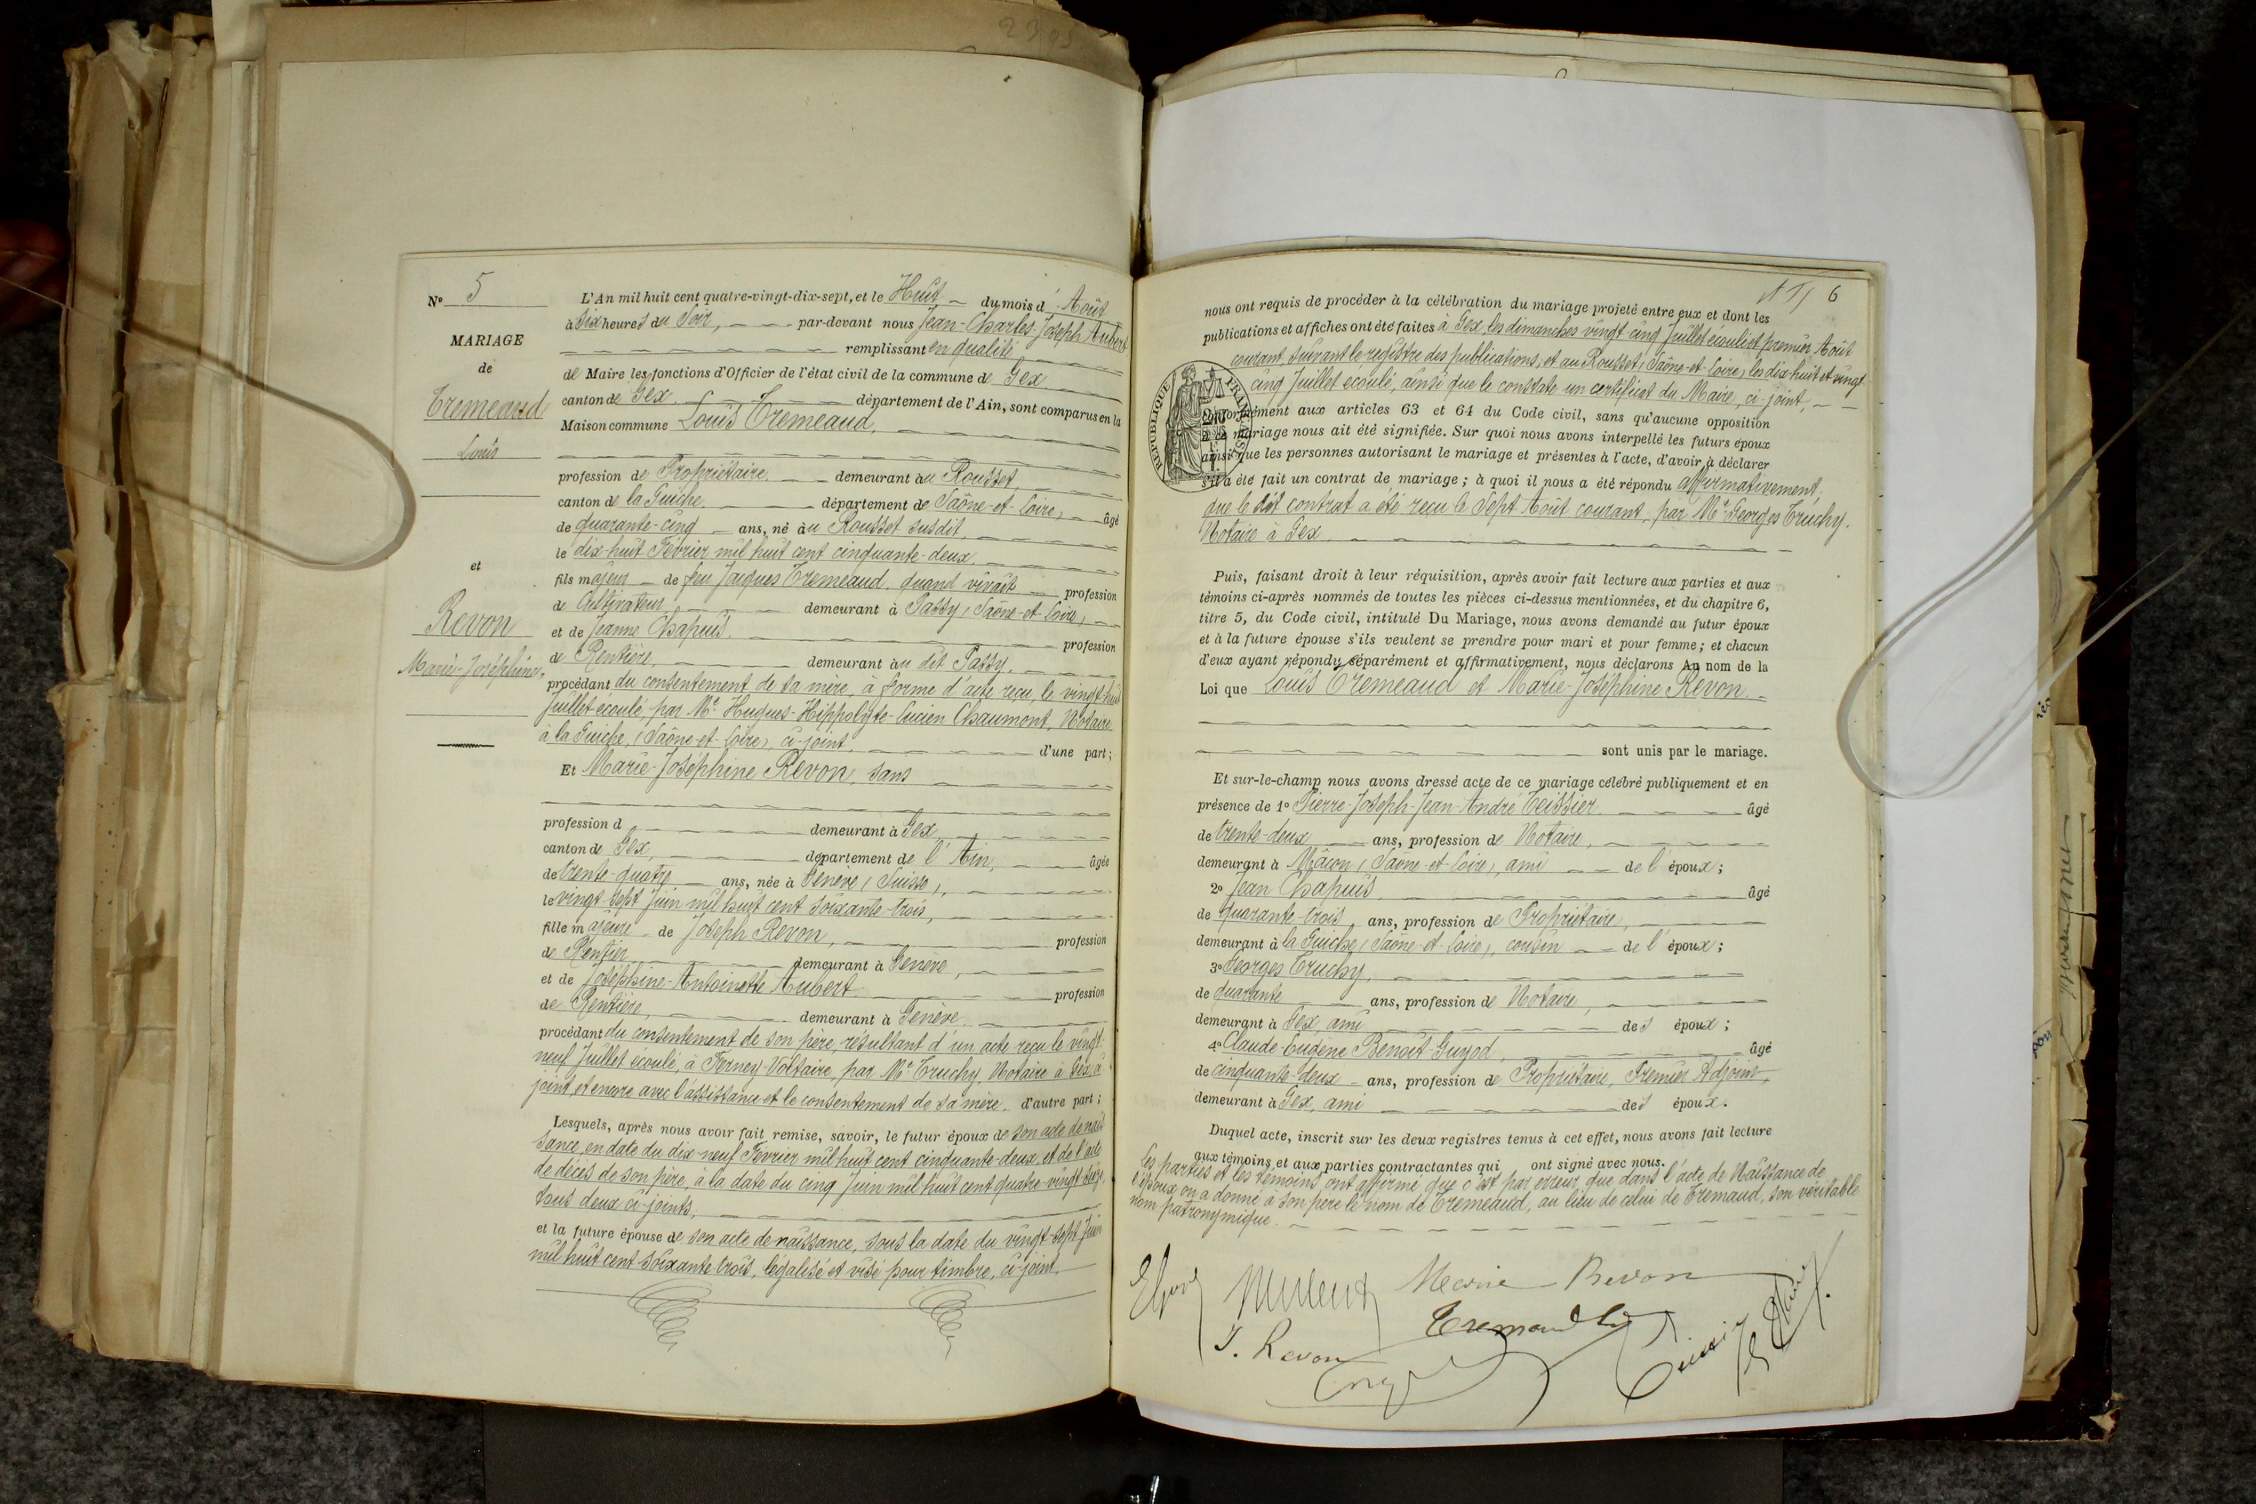 N° 5
MARIAGE
de
Tremeaud
Louis
et
Revon
Marie-Joséphine
L'An mil huit cent quatre-vingt-dix-sept, et le Huit du mois d'Août
à Six heures du Soir, par-devant nous Jean-Charles Joseph Aubert
remplissant en qualité
de Maire les fonctions d'Officier de l'état civil de la commune de Gex
canton de Gex département de l'Ain, sont comparus en la
Maison commune Louis Tremeaud,
profession de Propriétaire demeurant au Rousset,
canton de la Guiche département de Saône-et-Loire, âgé
de quarante-cinq ans, né au Rousset susdit,
le dix-huit Février mil huit cent cinquante-deux,
fils majeur de feu Jacques Tremeaud, quand vivait profession
de Cultivateur demeurant à Passy (Saône-et-Loire)
et de Jeanne Chapuis profession
de Rentière, demeurant au dit Passy,
procédant du consentement de sa mère, à forme d'acte reçu, le vingt-huit
Juillet écoulé, par Me Hugues-Hippolyte-Lucien Chaumont, Notaire
à la Guiche, (Saône-et-Loire), ci-joint, d'une part;
Et Marie-Joséphine Revon, sans
profession d demeurant à Gex,
canton de Gex, département de l'Ain, âgée
de trente-quatre ans, née à Genève (Suisse),
le vingt-sept Juin mil huit cent soixante-trois,
fille majeure de Joseph Revon, profession
de Rentier demeurant à Genève,
et de Joséphine-Antoinette Aubert profession
de Rentière, demeurant à Genève
procédant du consentement de son père, résultant d'un acte reçu le vingt-
neuf Juillet écoulé, à Ferney-Voltaire, par Me Truchy, Notaire à Gex, ci-
joint, et encore avec l'assistance et le consentement de sa mère. d'autre part;
Lesquels, après nous avoir fait remise, savoir, le futur époux de son acte de nais-
sance, en date du dix-neuf Février mil huit cent cinquante-deux, et de l'acte
de décès de son père, à la date du cinq Juin mil huit cent quatre-vingt-seize,
tous deux ci-joints,
et la future épouse de son acte de naissance, sous la date du vingt-sept Juin
mil huit cent soixante trois, légalisé et visé pour timbre, ci-joint.
6
nous ont requis de procéder à la célébration du mariage projeté entre eux et dont les
publications et affiches ont été faites à Gex, les dimanches vingt cinq Juillet écoulé et premier Août
courant, suivant le registre des publications, et au Rousset (Saône-et-Loire) les dix-huit et vingt-
cinq Juillet écoulé, ainsi que le constate un certificat du Maire, ci-joint,
RÉPUBLIQUE FRANÇAISE
Conformément aux articles 63 et 64 du Code civil, sans qu'aucune opposition
à ce mariage nous ait été signifiée. Sur quoi nous avons interpellé les futurs époux
ainsi que les personnes autorisant le mariage et présentes à l'acte, d'avoir à déclarer
s'il a été fait un contrat de mariage; à quoi il nous a été répondu affirmativement.
que le dit contrat a été reçu le Sept Août courant, par Me Georges Truchy.
Notaire à Gex.
Puis, faisant droit à leur réquisition, après avoir fait lecture aux parties et aux
témoins ci-après nommés de toutes les pièces ci-dessus mentionnées, et du chapitre 6,
titre 5, du Code civil, intitulé Du Mariage, nous avons demandé au futur époux
et à la future épouse s'ils veulent se prendre pour mari et pour femme; et chacun
d'eux ayant répondu séparément et affirmativement, nous déclarons Au nom de la
Loi que Louis Tremeaud et Marie-Joséphine Revon
sont unis par le mariage.
Et sur-le-champ nous avons dressé acte de ce mariage célébré publiquement et en
présence de 1° Pierre-Joseph-Jean-André Teissier âgé
de trente-deux ans, profession de Notaire,
demeurant à Mâcon (Saône-et-Loire), ami de l'époux;
2° Jean Chapuis âgé
de quarante-trois ans, profession de Propriétaire,
demeurant à la Guiche (Saône-et-Loire), cousin de l'époux;
3° Georges Truchy,
de quarante ans, profession de Notaire,
demeurant à Gex, ami des époux;
4° Claude-Eugène Benoit-Guyod, âgé
de cinquante-deux ans, profession de Propriétaire, Premier Adjoint,
demeurant à Gex, ami des époux.
Duquel acte, inscrit sur les deux registres tenus à cet effet, nous avons fait lecture
aux témoins et aux parties contractantes qui ont signé avec nous.
Les parties et les témoins ont affirmé que c'est par erreur que dans l'acte de Naissance de
l'époux on a donné à son père le nom de Tremeaud, au lieu de celui de Tremaud, son véritable
nom patronymique.
Marie Revon
Tremaud
J. Revon